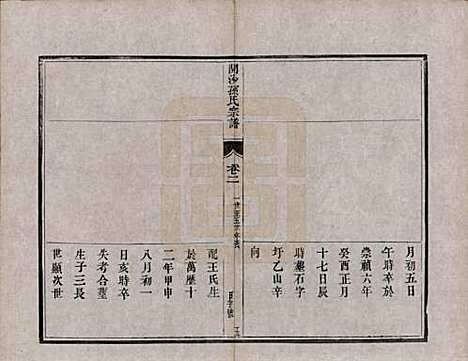 月初五日
午時卒於
崇禎六年
癸酉正月
十七日辰
時墓石字
圩乙山辛
向
開沙孫氏宗譜
卷二
配王氏生
於萬曆十
二年甲申
八月初一
日亥時卒
失考合墓
生子三長
世顯次世